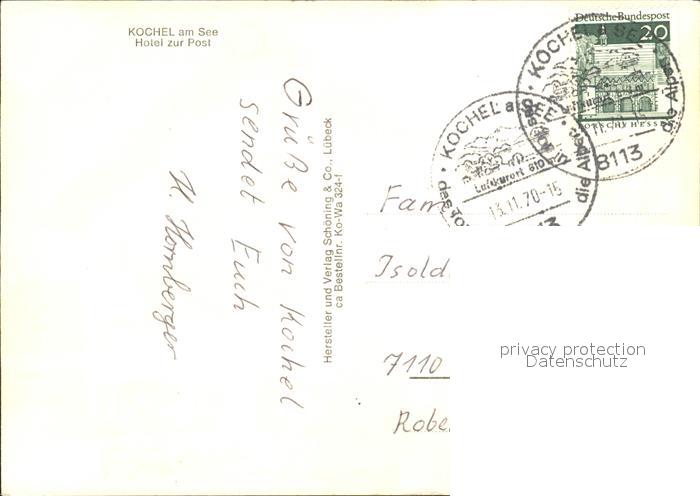 KOCHEL am See
Hotel zur Post
Grüße von Kochel
sendet Euch
H. Hornberger
Hersteller und Verlag Schöning & Co., Lübeck
ca Bestellnr. Ko-Wa 324-f
Deutsche Bundespost
20
LORSCH/HESSEN
KOCHEL a. SEE
die Alpen
8113
KOCHEL a. SEE
Luftkurort 610
13.11.70-15
das Tor
die Alpen
Fam
Isold
7110
Robe
privacy protection
Datenschutz